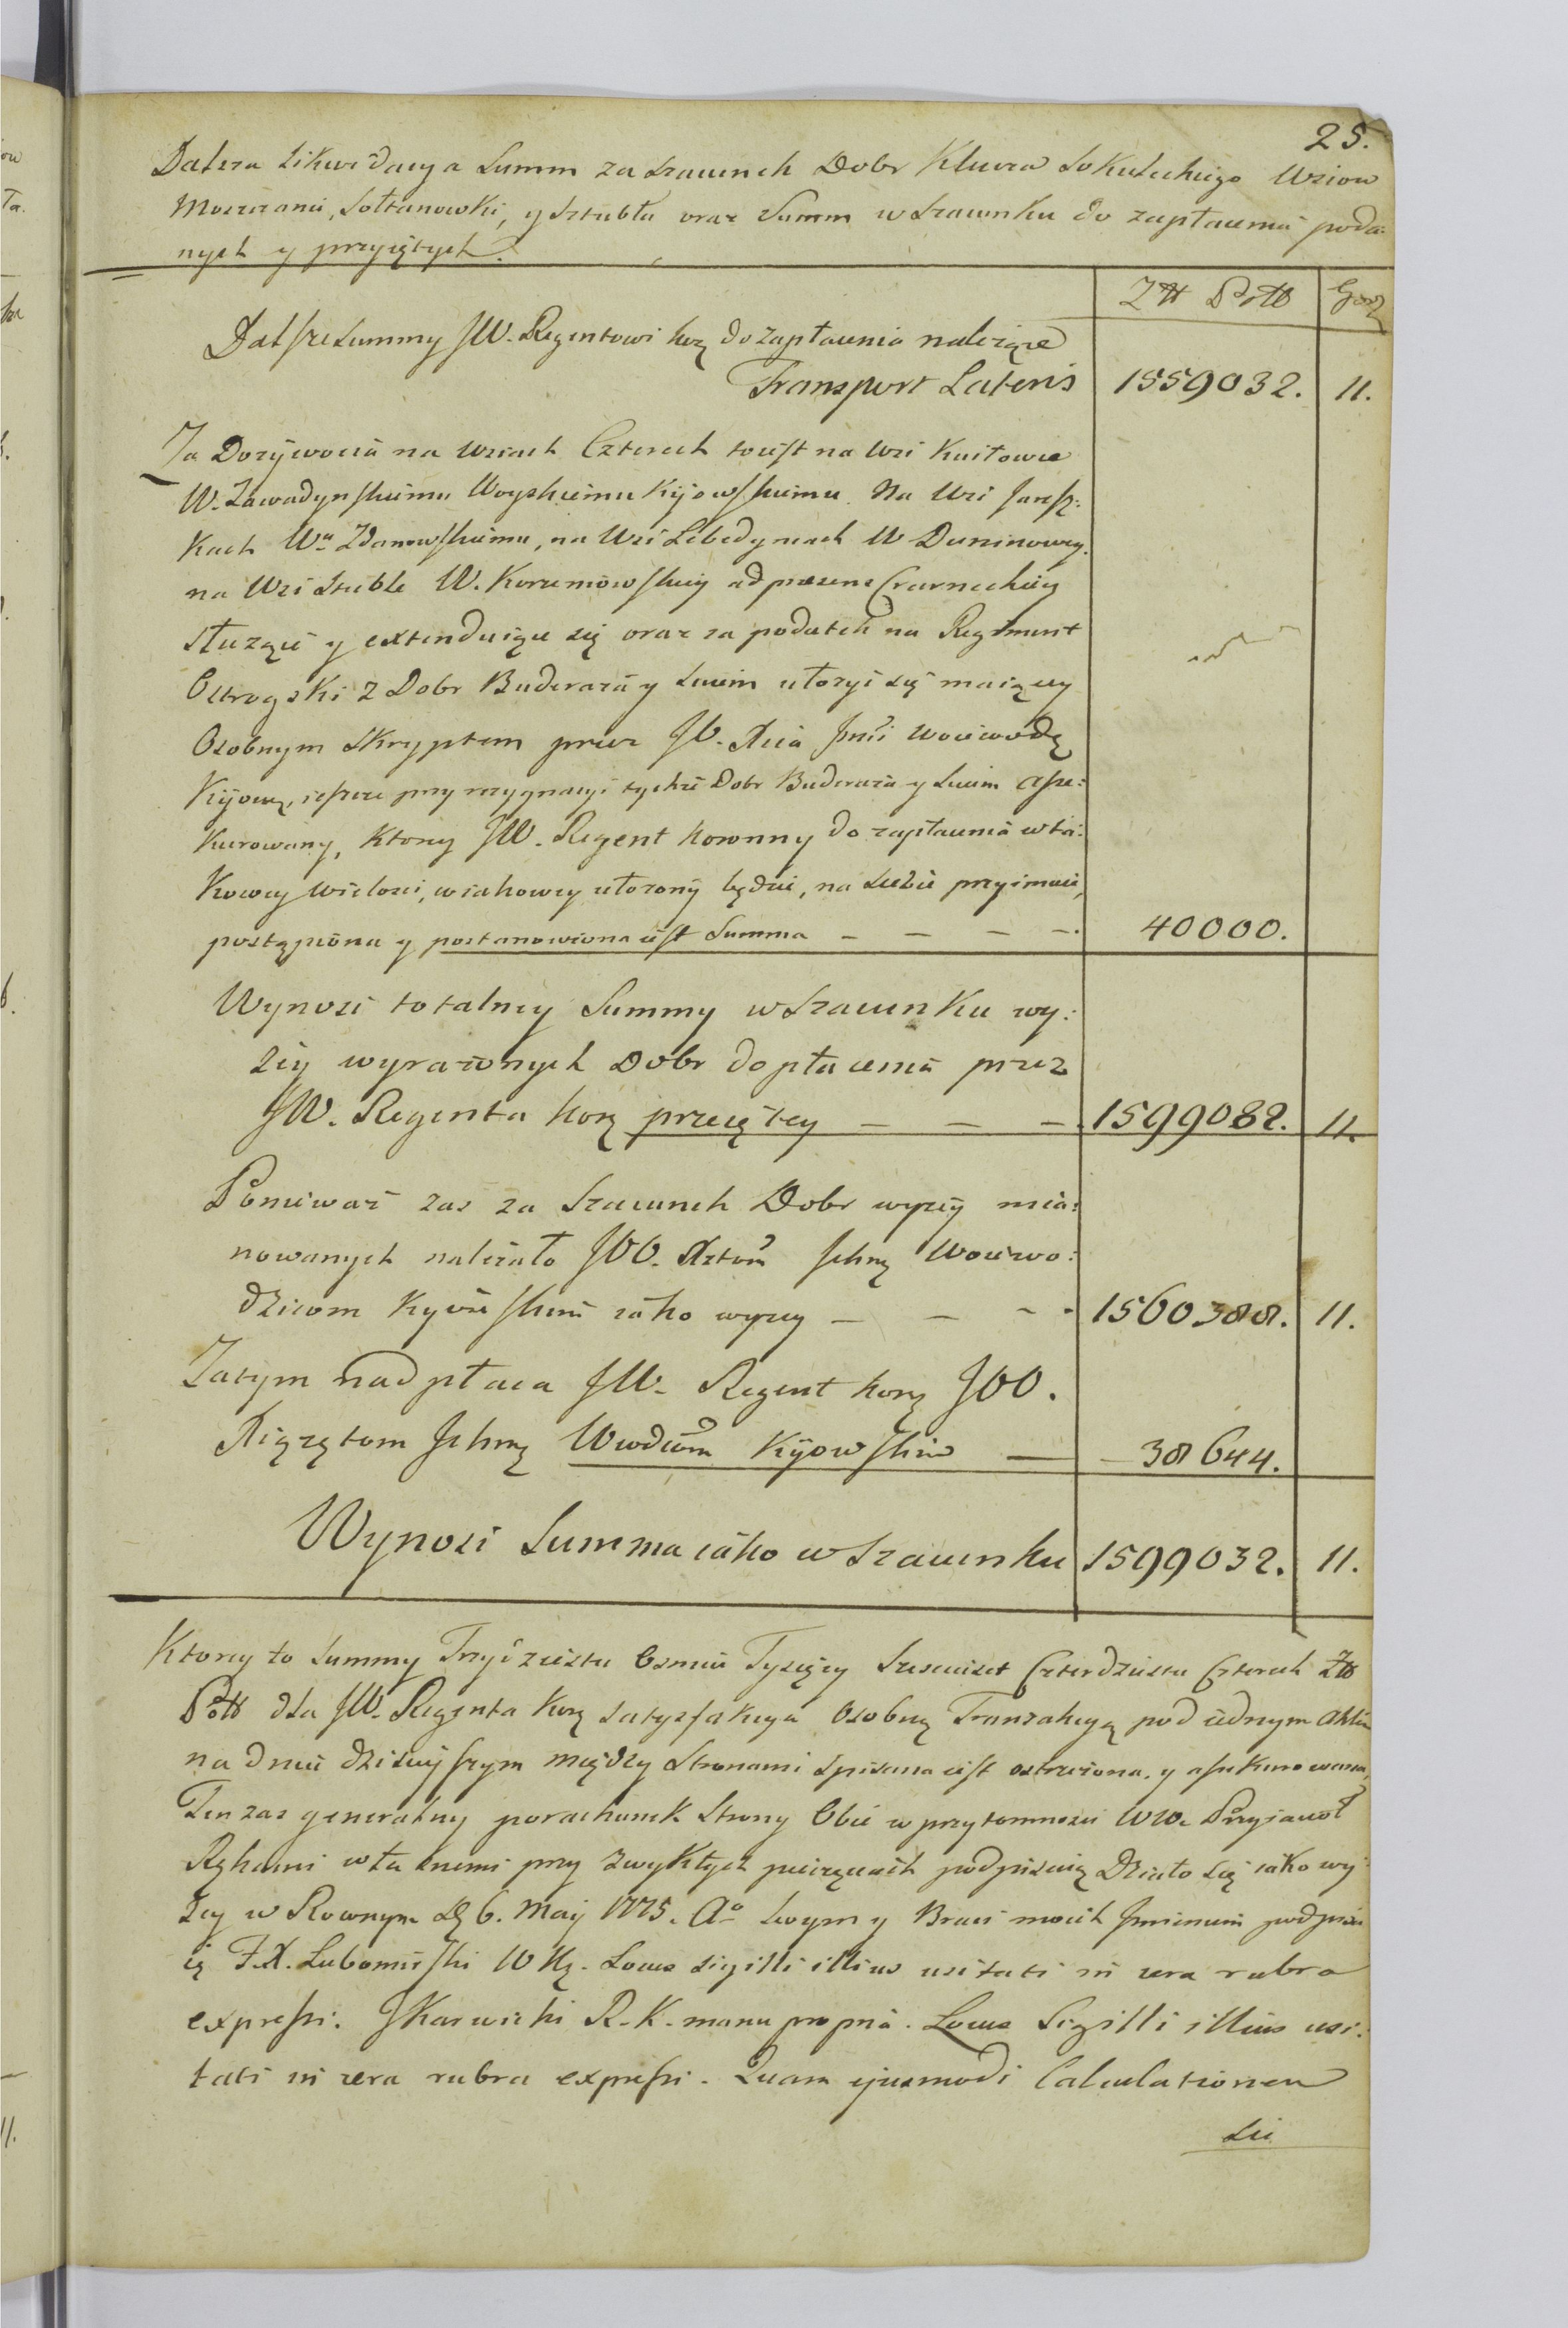 25.
Dalsza Likwidacya Summ za Szacunek Dobr Klucza Sokuleckiego Wsiow
Moszczanic, Sołtanowki, y Sztubła oraz Summ w Szacunku do zapłacenia poda:
nych y przyiętych.
Złł Polł Grosz
Dalsze Summy JW. Regentowi kor do zapłacenia należące
Transport Lateris 1559032. 11.
Za Dożywocia na wsiach Czterech to iest na wsi Kniłowce
W. Zawadynskiemu Woyskiemu Kijowskiemu. Na Wsi
Kach Wu Zdanowskiemu, na Wsi Lebedyncach W Duninowey.
na Wsi Stuble W. Korzeniowskiey ad praesens Czarneckiey
służące y extenduiące się oraz za podatek na Regiment
Ostrogski z Dobr Buderaza y Suiem ułożyć się maiący
Osobnym Skryptem przez JO. Xcia Jmci Woiewodę
Kijowsę, ieszcze przy rezygnacyi tychże Dobr Buderaża y Suiem asse:
kurowany, Ktory JW. Regent koronny do zapłacenia w ta:
kowey wielości, w iakowey ułożony będzie, na siebie przyimuie,
postąpiona y postanowiona iest Summa — — — —. 40000.
Wynosi totalney Summy w Szacunku wy:
żey wyrażonych Dobr do płacenia przez
JW. Regenta kor przeiętey — — — 1599082. 11.
Ponieważ zas za Szacunek Dobr wyżey mia:
nowanych należało JOO. Xztom Ichmę Woiewo:
dzicom Kyiowskim iako wyżey — — — 1560388. 11.
Zatym nadpłaca JW. Regent kor JOO.
Xiążętom Ichmę Wwdicom Kijowskim — 38644.
Wynosi Summa iako w Szacunku 1599032. 11.
Ktorey to Summy Trzydziestu Osmiu Tysięcy Szesciuset Czterdziestu Czterech Złł
Polł dla JW. Regenta Kor satysfakcya Osobną Tranzakcyą pod iednym Aktem
na dniu dzisieyszym między Stronami spisana iest ostrzeżona. y assekurowana,
Ten zas generalny porachunek Strony Obie w przytomnosci WW. Przyiacioł
Rękami własnemi przy zwykłych pieczęciach podpisuią Działo się iako wy:
żey w Rownym D. 6. Maij 1775. Ao Swoym y Braci moich Imieniem podpisu
ię F. X. Lubomirski W K. Locus Sigilli illius usitati in cera rubra
expressi. JKarwicki R. K. manu propria. Locus Sigilli illius usi:
tati in cera rubra expressi. Quam ejusmodi Calculationem
Sic